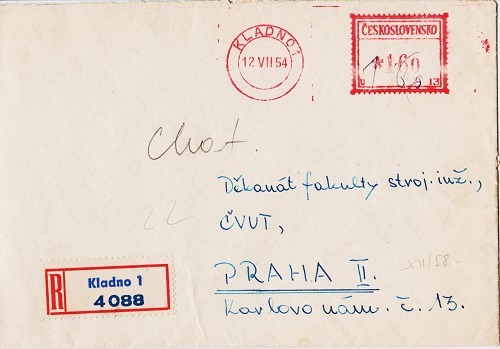 KLADNO 1
12 VII 54
ČESKOSLOVENSKO
*160
U 13
Chot.
Děkanát fakulty stroj. inž.,
ČVUT,
22
PRAHA II.
XII/58
Karlovo nám. č. 13.
R
Kladno 1
4088